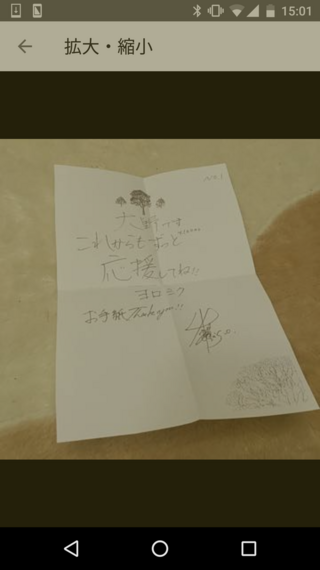 15:01
拡大・縮小
大野です
これからもずっと……
応援してね!!
ヨロシク
お手紙Thank you!!